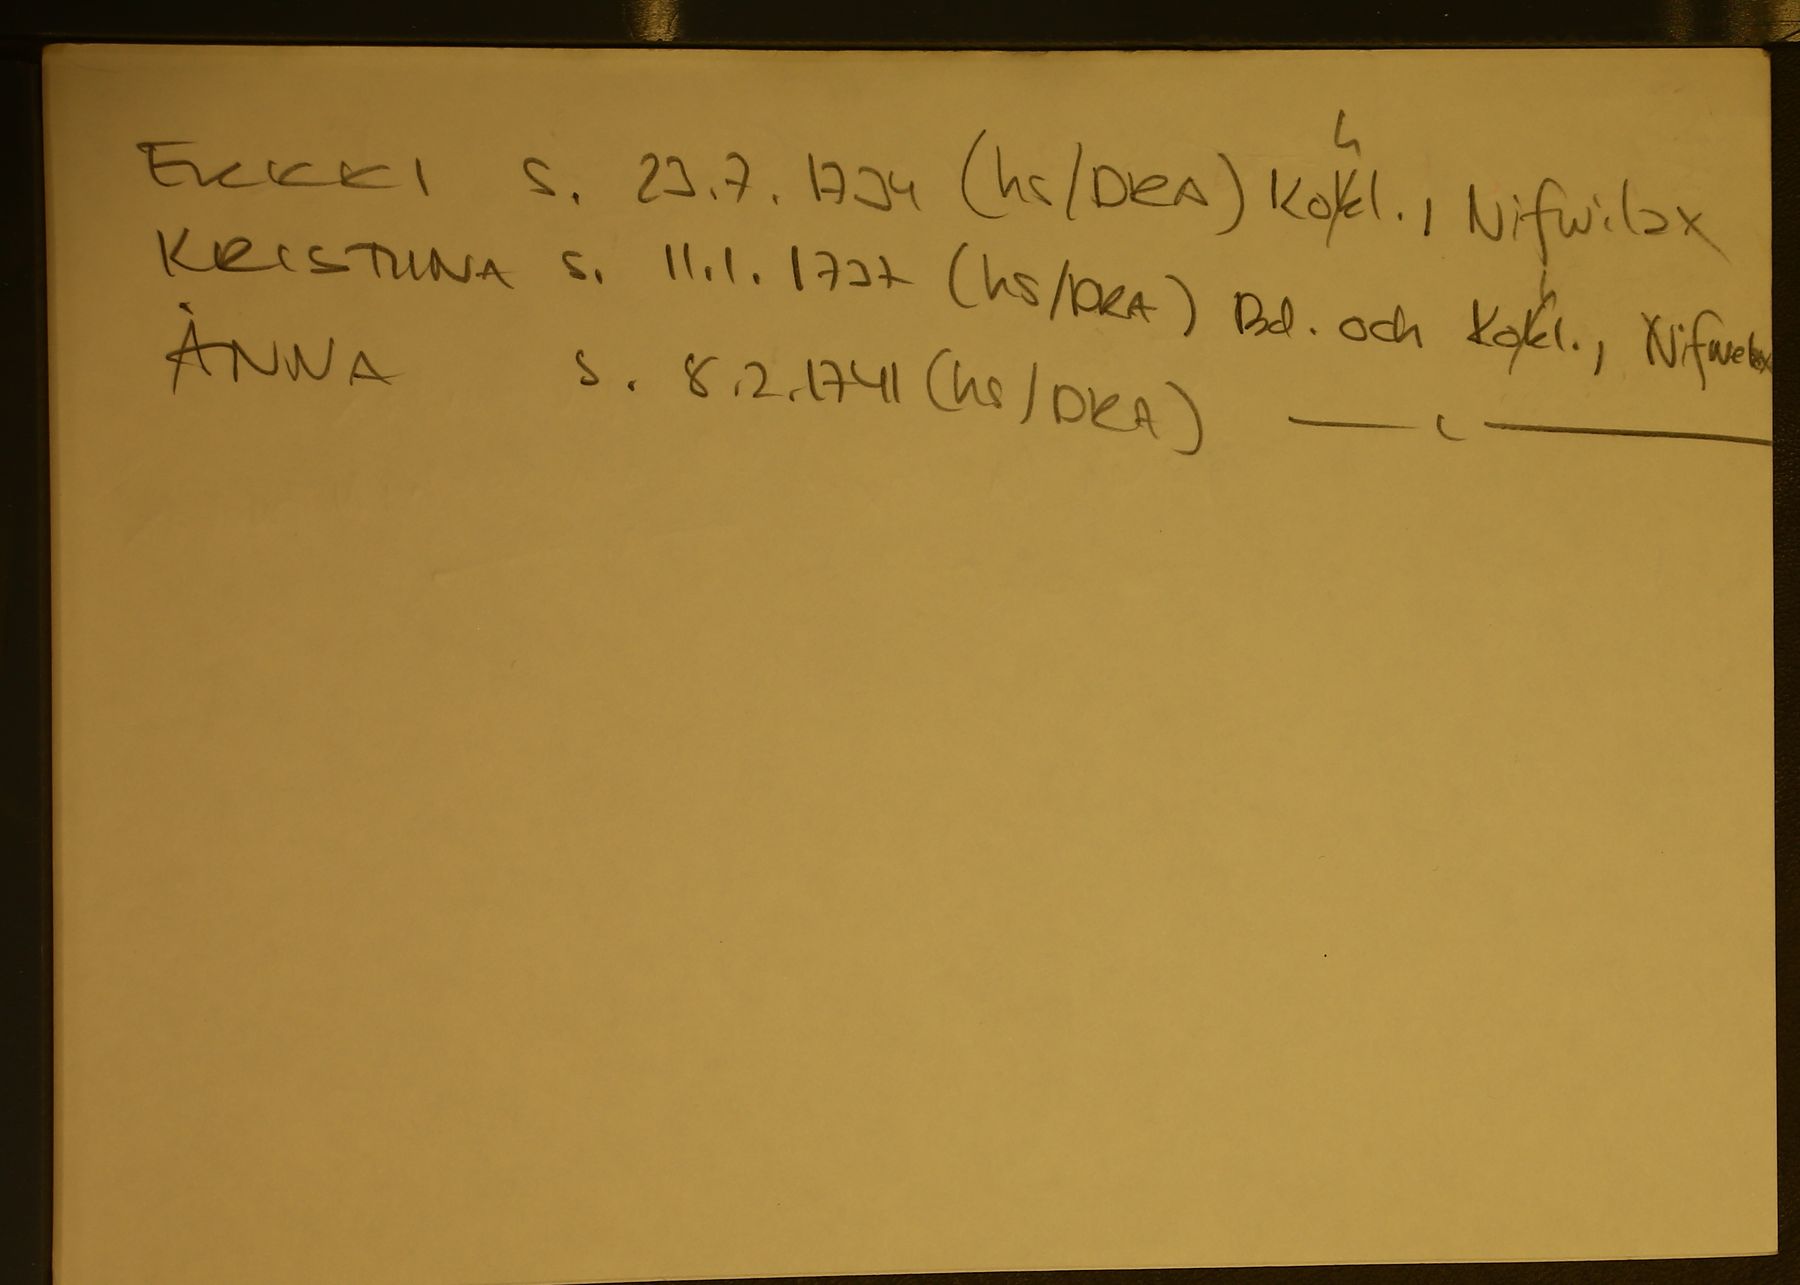 ERKKI s. 23.7.1734 (hs/DRA) Kohl., Nifwilax
KRISTIINA s. 11.1.1737 (hs/DRA) Bd. och Kohl., Nifwelax
ANNA s. 8.2.1741 (hs/DRA) — " —